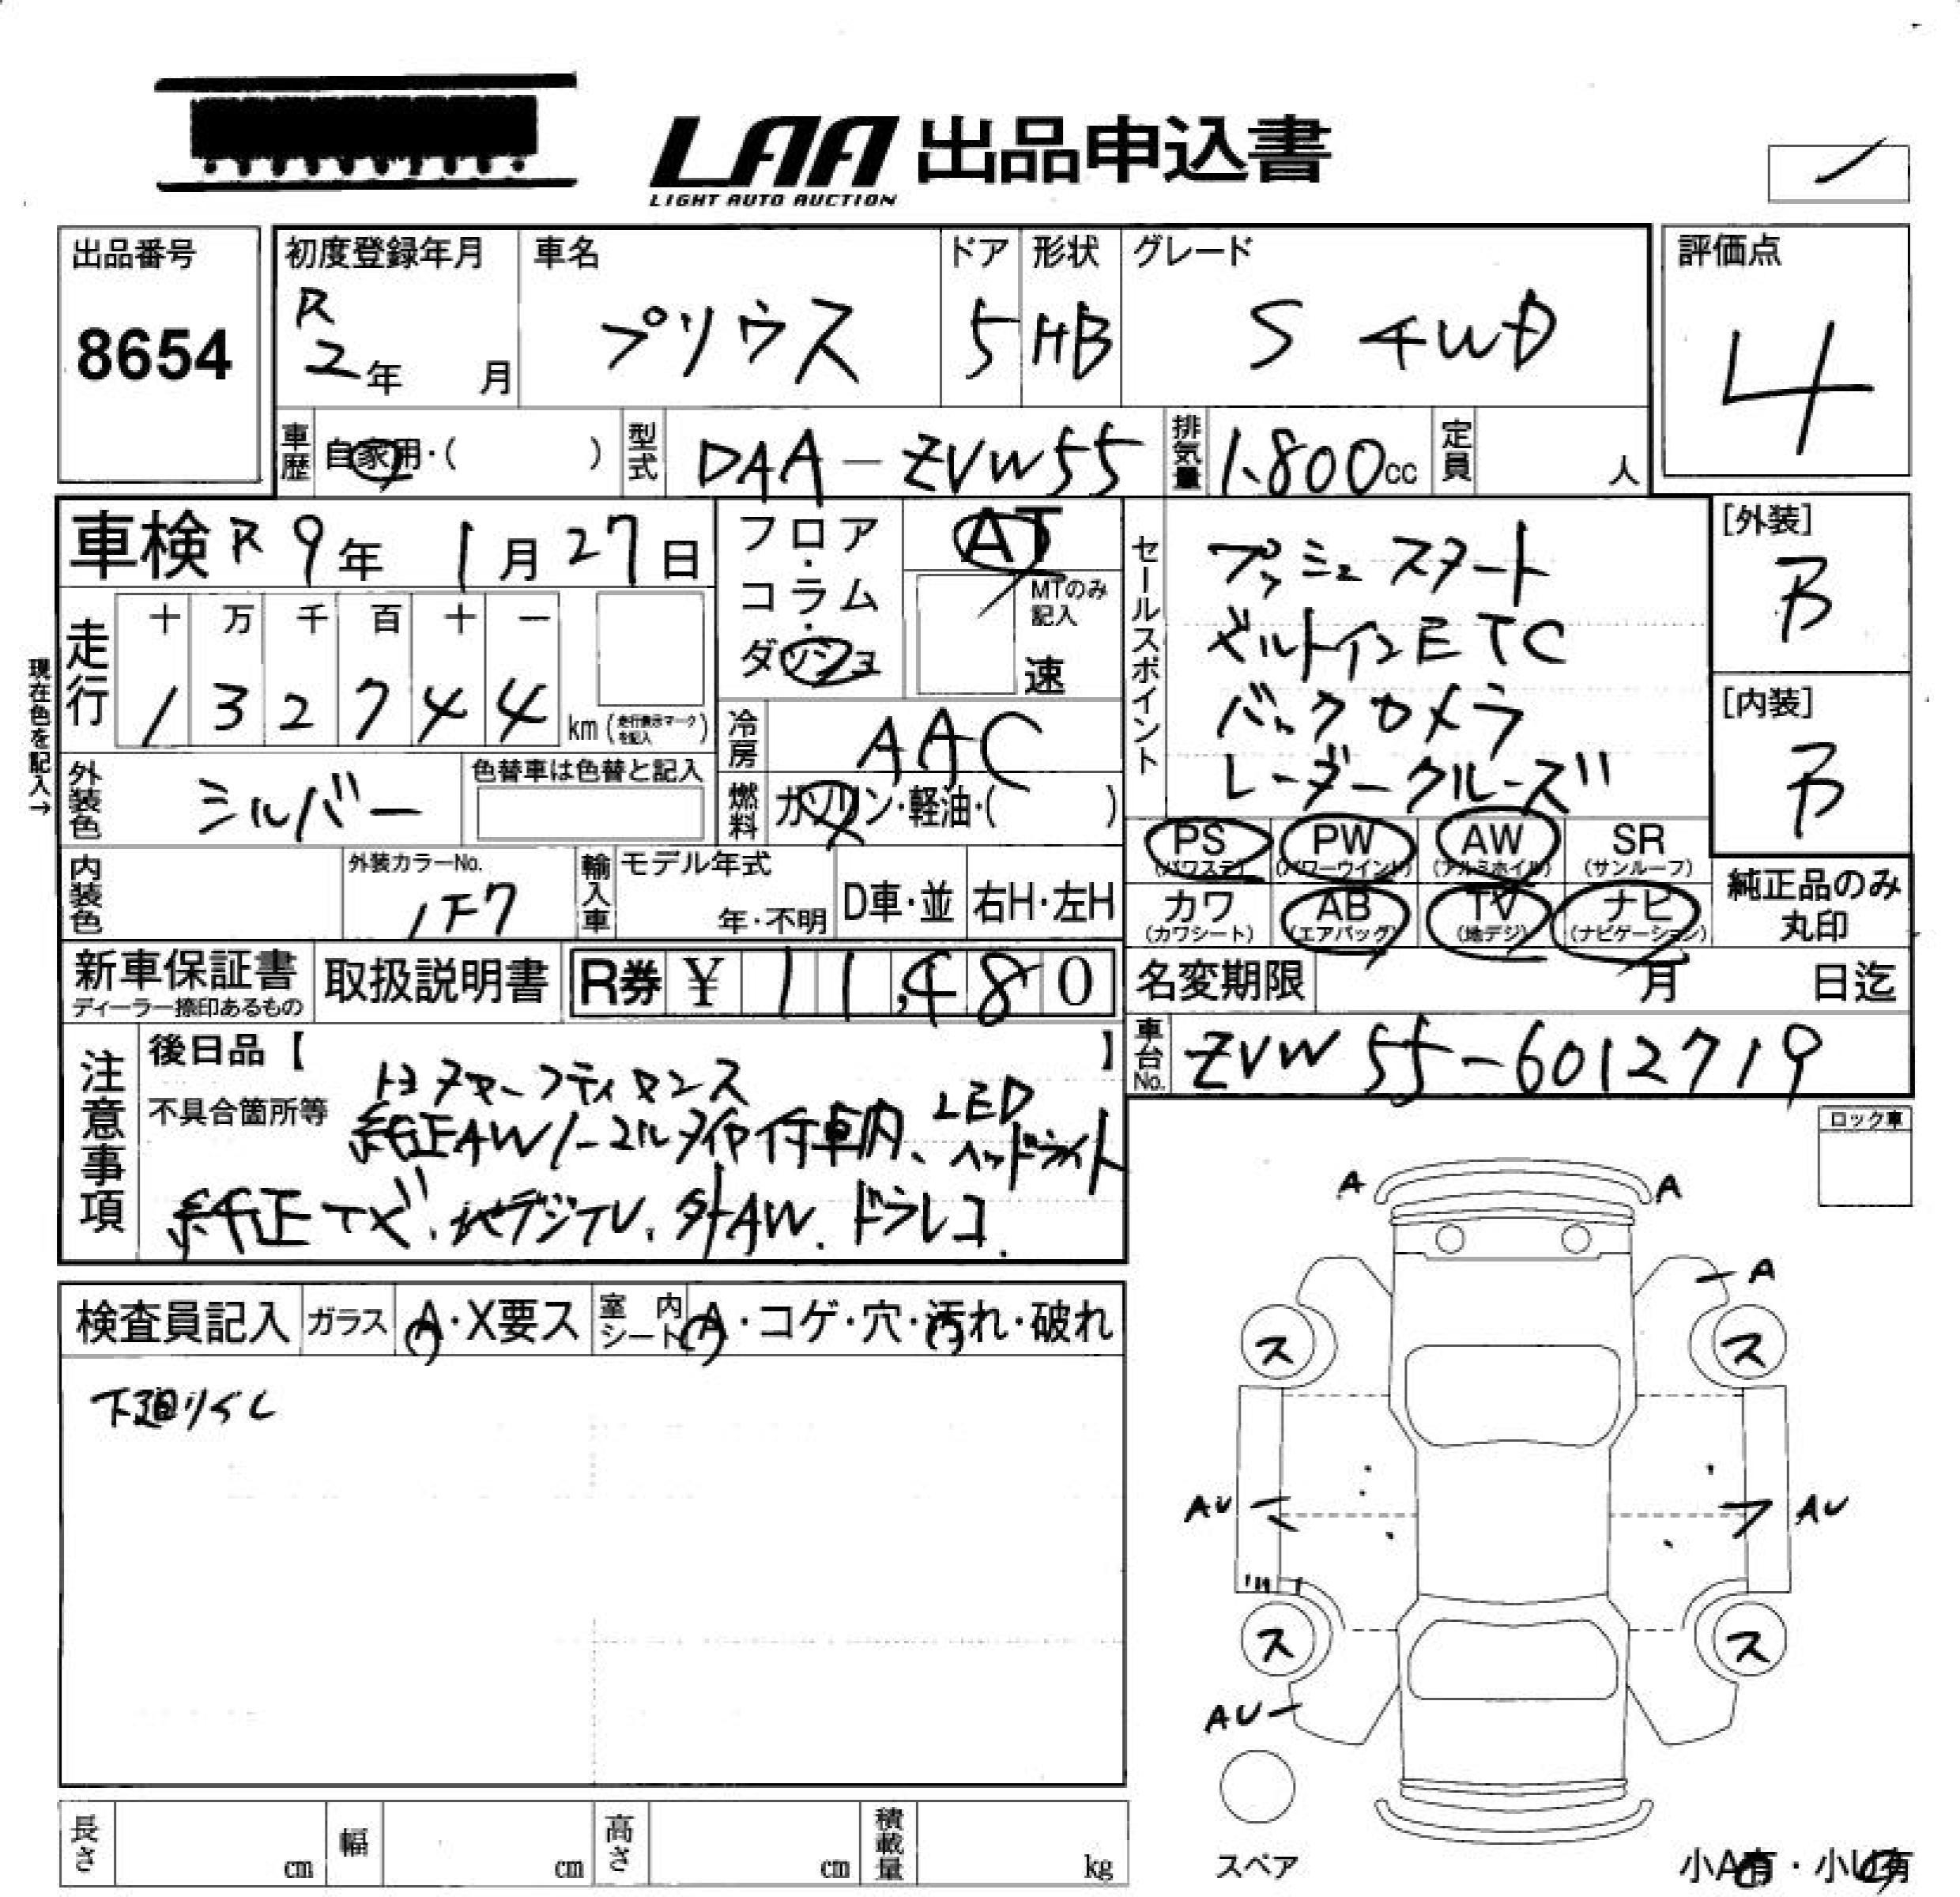 LAA 出品申込書
LIGHT AUTO AUCTION
出品番号
8654
初度登録年月
R
2年 月
車名
プリウス
ドア
5
形状
HB
グレード
S 4WD
評価点
4
車歴
自家用・( )
型式
DAA-ZVW55
排気量
1.800cc
定員
人
車検 R 9年 1月 27日
走行
十 万 千 百 十 一
1 3 2 7 4 4
km (走行表示マークを記入)
フロア・コラム・ダッシュ
AT
MTのみ記入
速
冷房
AAC
燃料
ガソリン・軽油・( )
現在色を記入→
外装色
シルバー
色替車は色替と記入
内装色
外装カラーNo.
1F7
輸入車
モデル年式
年・不明
D車・並
右H・左H
セールスポイント
プッシュスタート
ビルトインETC
バックカメラ
レーダークルーズ
[外装]
B
[内装]
B
PS (パワステ)
PW (パワーウインド)
AW (アルミホイル)
SR (サンルーフ)
カワ (カワシート)
AB (エアバッグ)
TV (地デジ)
ナビ (ナビゲーション)
純正品のみ丸印
新車保証書
ディーラー捺印あるもの
取扱説明書
R券 ¥ 11,480
名変期限 月 日迄
車台No.
ZVW55-6012719
注意事項
後日品【 】
不具合箇所等
純正AWノーマルタイヤ付車内、LEDヘッドライト
純正ナビ、地デジTV、外AW、ドラレコ
ロック車
検査員記入
ガラス
A・X要ス
室内シート
A・コゲ・穴・汚れ・破れ
A
A
A
ス
ス
AU
AU
ス
ス
AU
スペア
長さ cm
幅 cm
高さ cm
積載量 kg
小A有・小U有